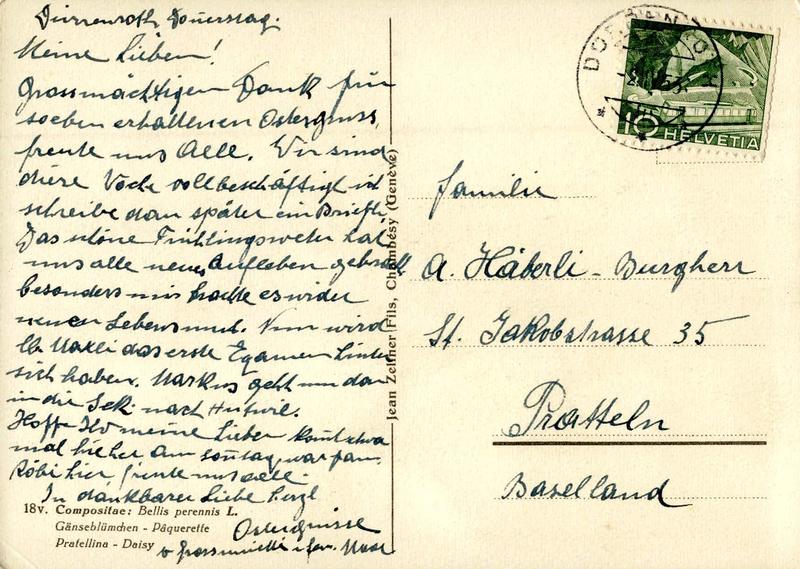 Dürrenroth Donerstag.
Meine Lieben!
Grossmächtigen Dank für
soeben erhaltenen Ostergruss,
freute uns Alle. Wir sind
diese Woche vollbeschäftigt ich
schreibe dan später ein Briefli
Das schöne Frühlingsweter hat
uns alle neues Aufleben gebracht
besonders mir brachte es wider
neuen Lebensmut. Nun wird
das erste Examen hinter
sich haben. Markus geht nun dan
in die Sek nach Hutwil.
Hoff Ihr meine Lieben kömt etwa
mal hieher am Sonntag war Fam.
Röbi hier freute uns alle.
In dankbarer Liebe herzl
Ostergrüsse
v Grossmuetti
18v. Compositae: Bellis perennis L.
Gänseblümchen - Pâquerette
Pratellina - Daisy
Jean Zellner Fils, Chambésy (Genève)
10 HELVETIA
Familie
A. Häberli - Burgherr
St. Jakobstrasse 35
Pratteln
Baselland